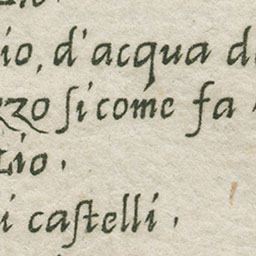 io, d'acqua d
zzo ſi come fa
io.
i caſtelli.